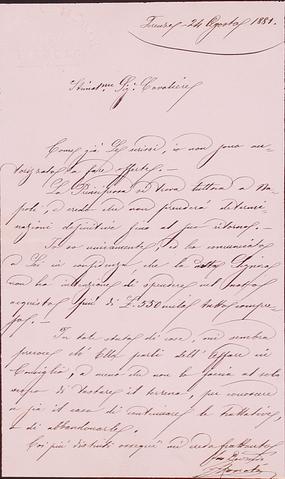 Firenze 24 Agosto 1881.
Stimat.mo Sig. Cavaliere
Come già Le scrissi, io non sono au-
torizzato a fare offerte. —
La Principessa si trova tuttora a Na-
poli, e credo che non prenderà determi-
nazioni definitive fino al suo ritorno. —
Io so unicamente, ed ho comunicato
a Lei in confidenza, che la detta Signora
non ha intenzione di spendere nel
acquisto più di £. 350 mila tutto compre-
so. —
In tale stato di cose, mi sembra
precoce che Ella parli dell'affare in
Consiglio, a meno che non lo faccia al solo
scopo di tastare il terreno, per conoscere
se già il caso di continuare le trattative,
o di abbandonarle.
Coi più distinti ossequi mi creda